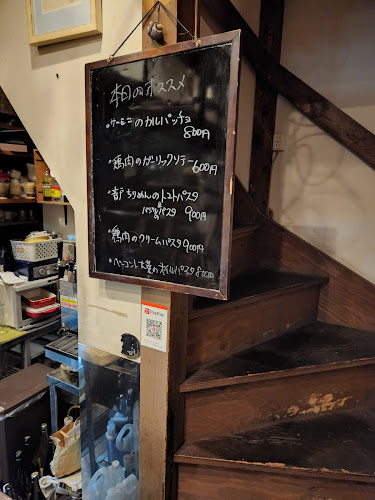 本日のオススメ
・サーモンのカルパッチョ
800円
・鶏肉のガーリックソテー
600円
ちりめんのトマトパスタ
900円
・鶏肉のクリームパスタ 900円
・ベーコンと大葉のオイルパスタ 800円
PayPay